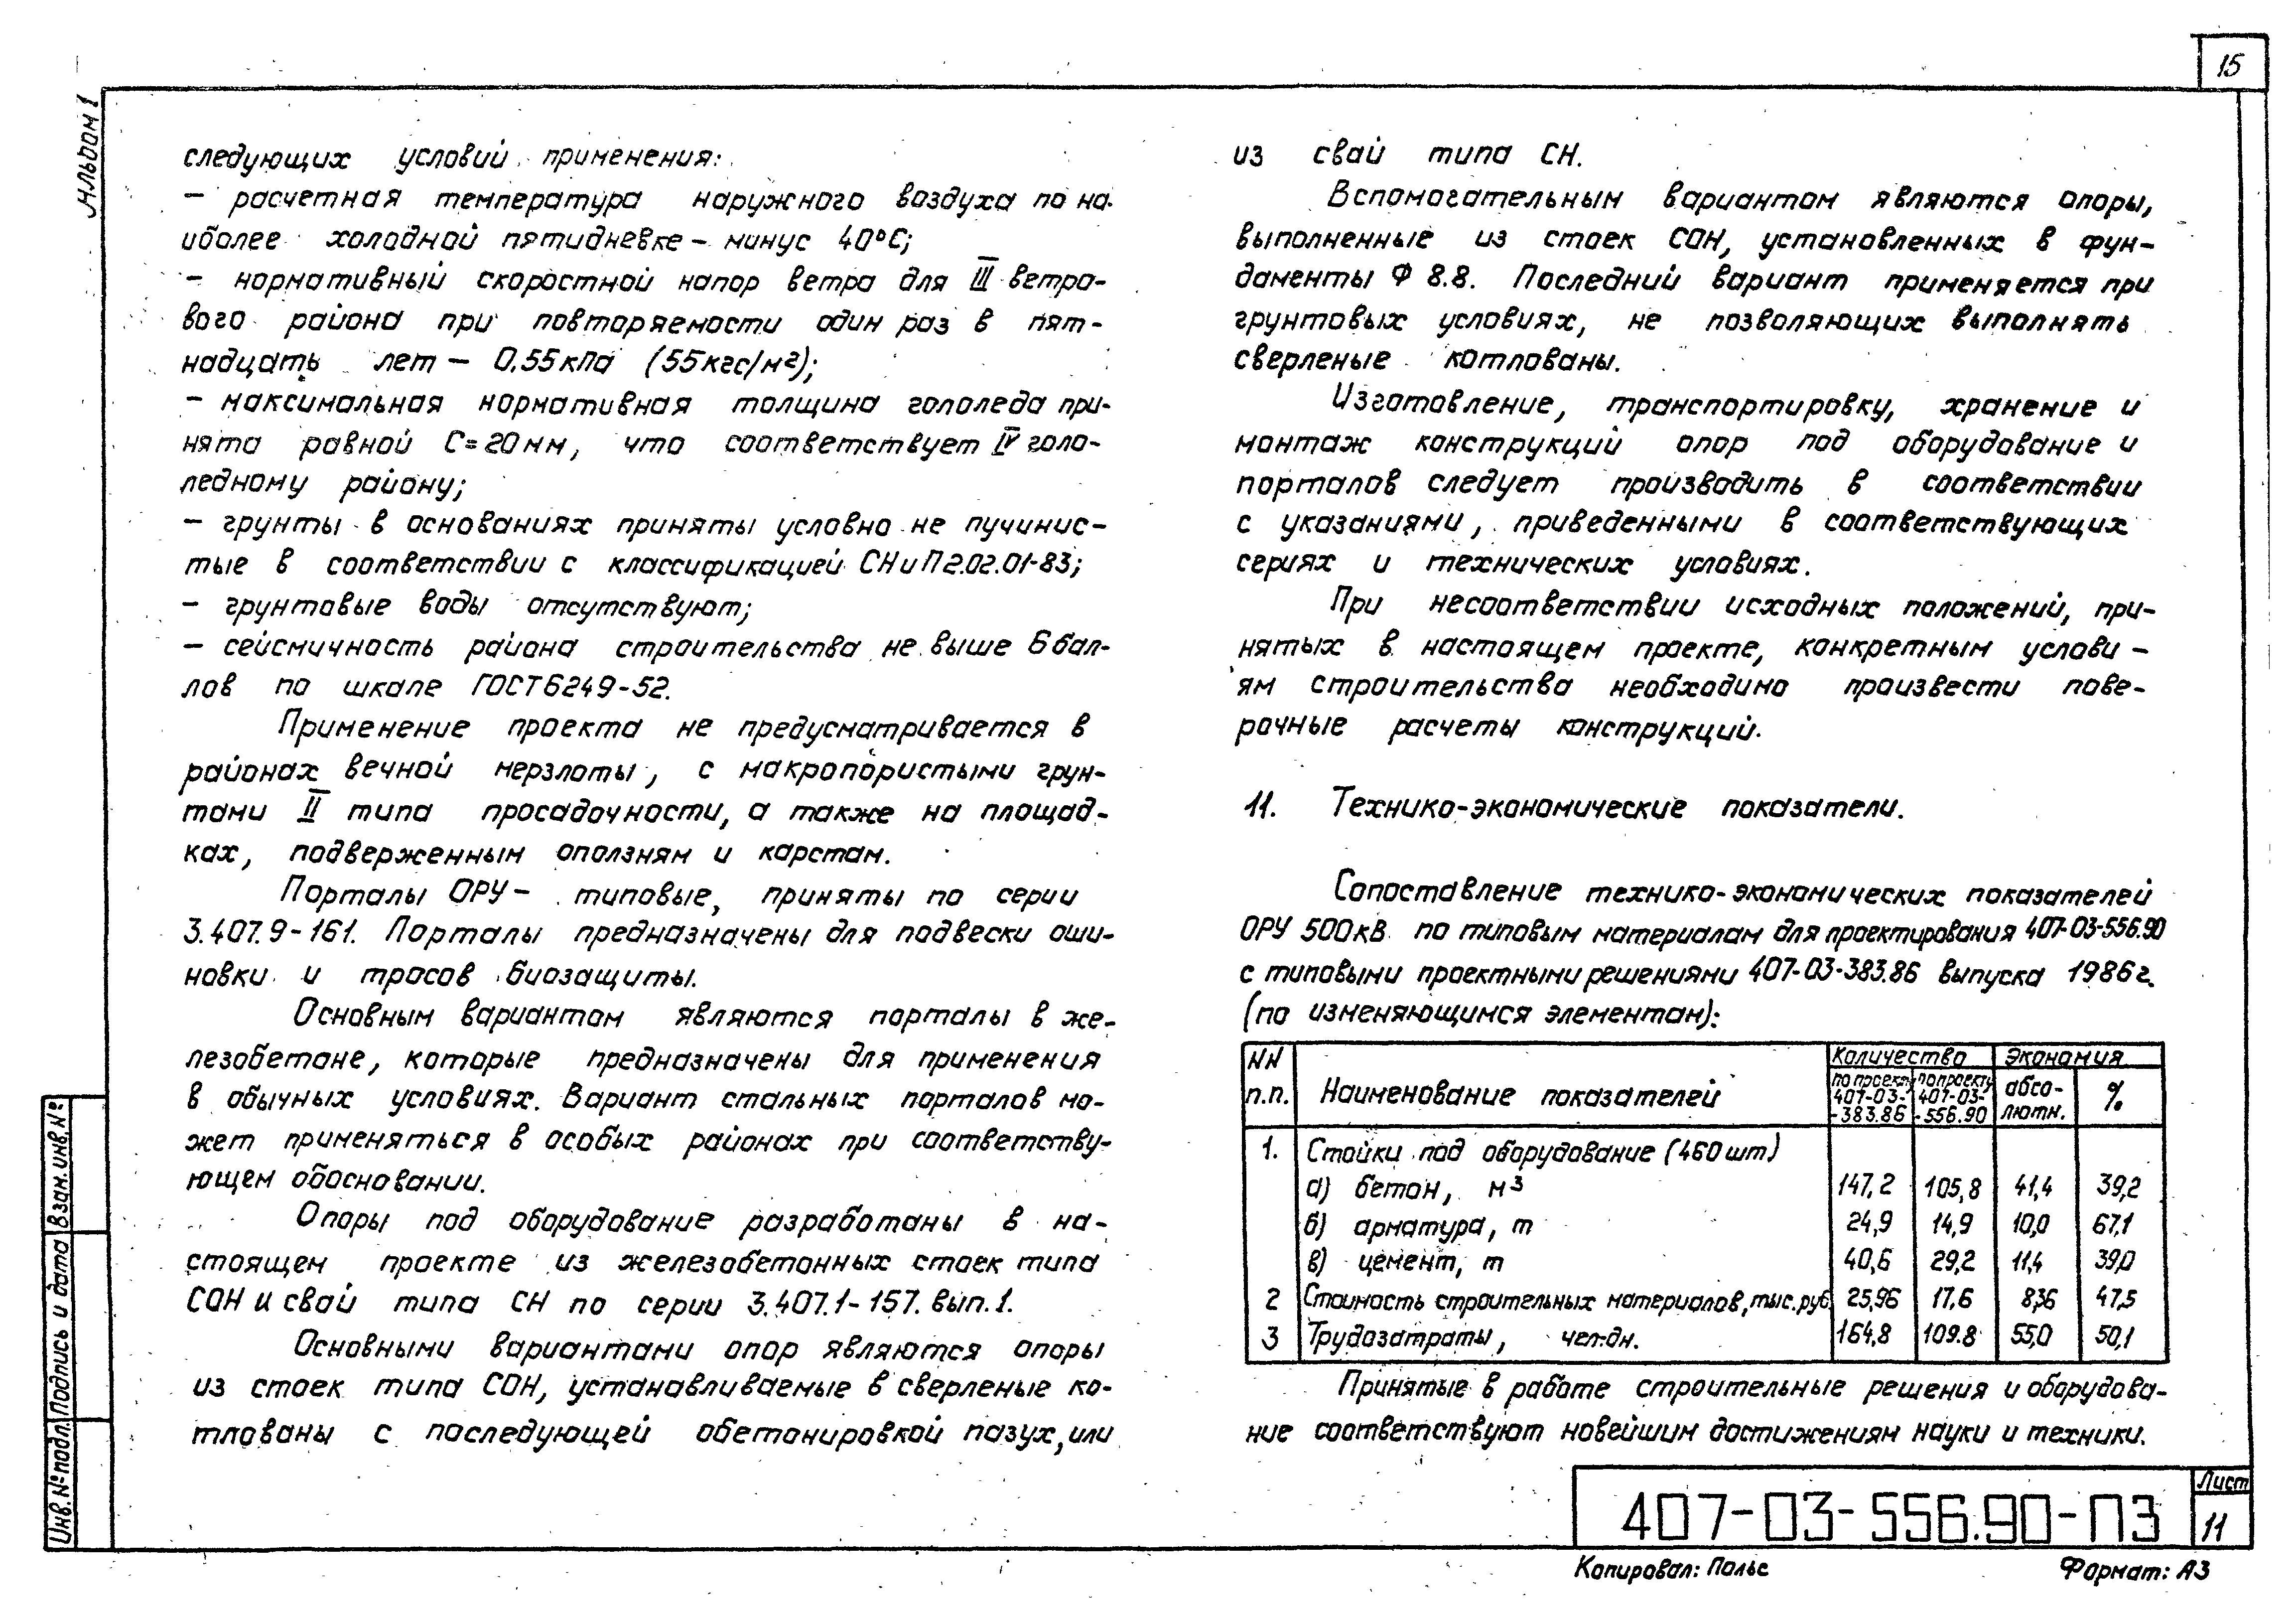 15
Альбом 1
следующих условий применения:
– расчетная температура наружного воздуха по на-
иболее холодной пятидневке – минус 40°С;
– нормативный скоростной напор ветра для III ветро-
вого района при повторяемости один раз в пят-
надцать лет – 0,55 кПа (55 кгс/м²);
– максимальная нормативная толщина гололеда при-
нята равной С=20 мм, что соответствует IV голо-
ледному району;
– грунты в основаниях приняты условно не пучинис-
тые в соответствии с классификацией СНиП 2.02.01-83;
– грунтовые воды отсутствуют;
– сейсмичность района строительства не выше 6 бал-
лов по шкале ГОСТ 6249-52.
Применение проекта не предусматривается в
районах вечной мерзлоты, с макропористыми грун-
тами II типа просадочности, а также на площад-
ках, подверженным оползням и карстам.
Порталы ОРУ – типовые, приняты по серии
3.407.9-161. Порталы предназначены для подвески оши-
новки и тросов биозащиты.
Основным вариантом являются порталы в же-
лезобетоне, которые предназначены для применения
в обычных условиях. Вариант стальных порталов мо-
жет применяться в особых районах при соответству-
ющем обосновании.
Опоры под оборудование разработаны в на-
стоящем проекте из железобетонных стоек типа
СОН и свай типа СН по серии 3.407.1-157. вып.1.
Основными вариантами опор являются опоры
из стоек типа СОН, устанавливаемые в сверленые ко-
тлованы с последующей обетонировкой пазух, или
из свай типа СН.
Вспомогательным вариантом являются опоры,
выполненные из стоек СОН, установленных в фун-
даменты Ф 8.8. Последний вариант применяется при
грунтовых условиях, не позволяющих выполнять
сверленые котлованы.
Изготовление, транспортировку, хранение и
монтаж конструкций опор под оборудование и
порталов следует производить в соответствии
с указаниями, приведенными в соответствующих
сериях и технических условиях.
При несоответствии исходных положений, при-
нятых в настоящем проекте, конкретным услови-
ям строительства необходимо произвести пове-
рочные расчеты конструкций.
11. Технико-экономические показатели.
Сопоставление технико-экономических показателей
ОРУ 500кВ по типовым материалам для проектирования 407-03-556.90
с типовыми проектными решениями 407-03-383.86 выпуска 1986г.
(по изменяющимся элементам):
NN п.п. Наименование показателей Количество Экономия
по проекту 407-03-383.86 по проекту 407-03-556.90 абсо-лютн. %
1. Стойки под оборудование (460 шт)
а) бетон, м³ 147,2 105,8 41,4 39,2
б) арматура, т 24,9 14,9 10,0 67,1
в) цемент, т 40,6 29,2 11,4 39,0
2 Стоимость строительных материалов, тыс.руб. 25,96 17,6 8,36 47,5
3 Трудозатраты, чел-дн. 164,8 109.8 55,0 50,1
Принятые в работе строительные решения и оборудова-
ние соответствуют новейшим достижениям науки и техники.
407-03-556.90-ПЗ
Лист
11
Копировал: Полье
Формат: А3
Инв.№подл. Подпись и дата Взам.инв.№